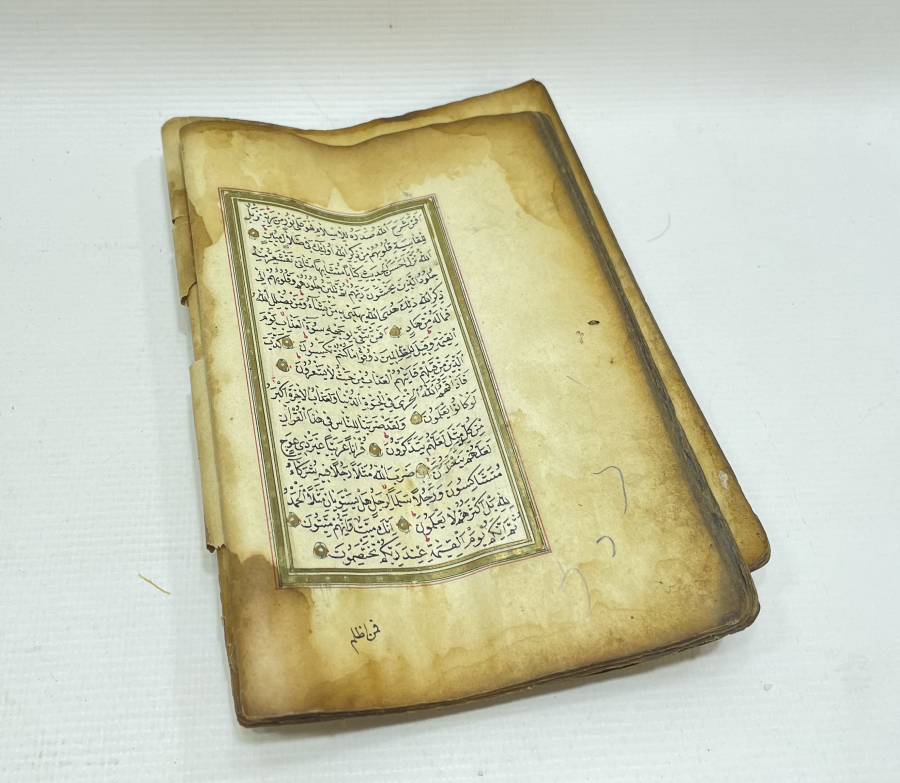 افمن شرح الله صدره للاسلام فهو على نور من ربه فويل
للقاسية قلوبهم من ذكر الله اولئك في ضلال مبين
الله نزل احسن الحديث كتابا متشابها مثاني تقشعر منه
جلود الذين يخشون ربهم ثم تلين جلودهم وقلوبهم الى
ذكر الله ذلك هدى الله يهدي به من يشاء ومن يضلل الله
فما له من هاد افمن يتقي بوجهه سوء العذاب يوم
القيمة وقيل للظالمين ذوقوا ما كنتم تكسبون كذب
الذين من قبلهم فاتيهم العذاب من حيث لا يشعرون
فاذاقهم الله الخزي في الحيوة الدنيا ولعذاب الاخرة اكبر
لو كانوا يعلمون ولقد ضربنا للناس في هذا القران
من كل مثل لعلهم يتذكرون قرانا عربيا غير ذي عوج
لعلهم يتقون ضرب الله مثلا رجلا فيه شركاء
متشاكسون ورجلا سلما لرجل هل يستويان مثلا الحمد
لله بل اكثرهم لا يعلمون انك ميت وانهم ميتون
ثم انكم يوم القيمة عند ربكم تختصمون
فمن اظلم